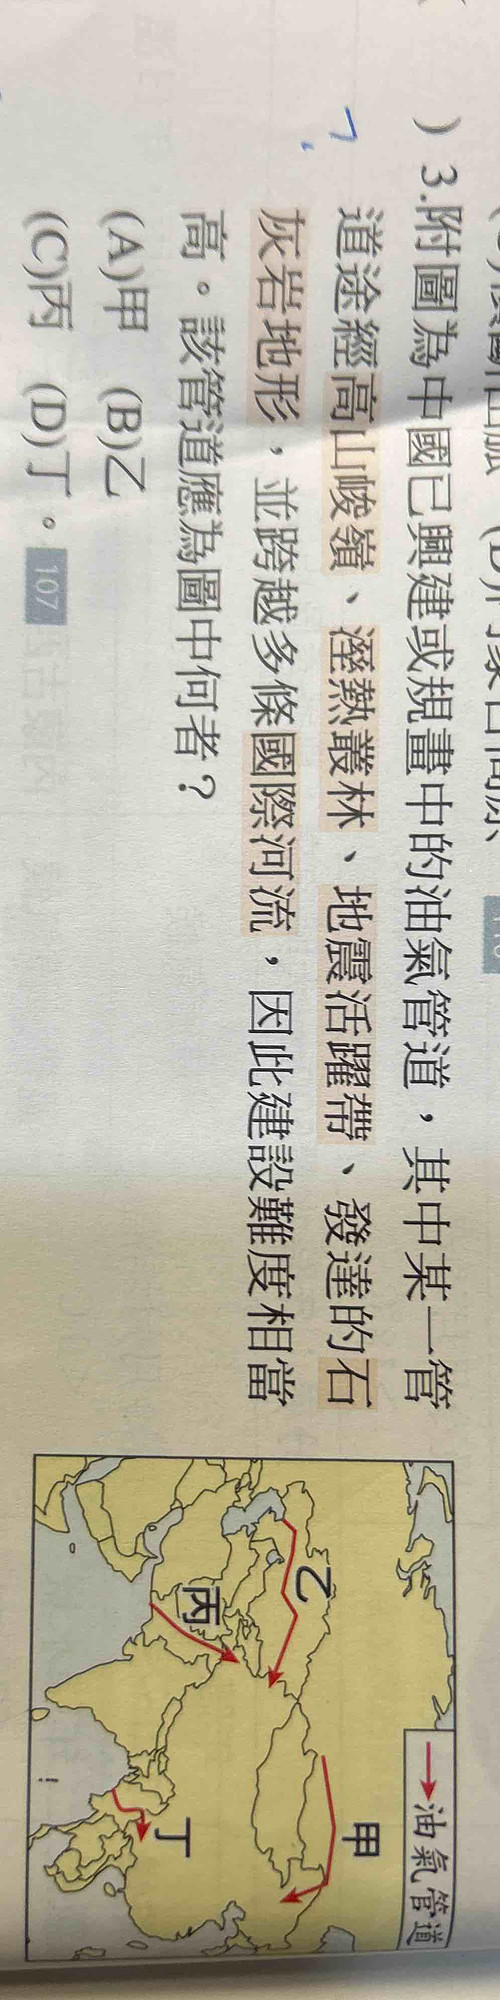 )3.附圖為中國已興建或規畫中的油氣管道，其中某一管
道途經高山峻嶺、溼熱叢林、地震活躍帶、發達的石
灰岩地形，並跨越多條國際河流，因此建設難度相當
高。該管道應為圖中何者？
(A)甲 (B)乙
(C)丙 (D)丁。107
油氣管道
甲
乙
丙
丁